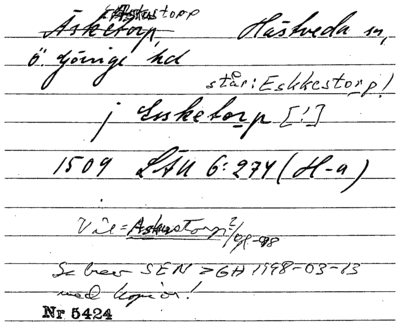 Askestorp
Äsketorp Hästveda sn,
Ö. Göinge hd
står: Eskkestorp!
j Esketorp [!]
1509 LÄU 6:274 (H-a)
Vil = Askestorp 2/98
Se brev SEN > GH 1998-03-13
med kopior!
Nr 5424